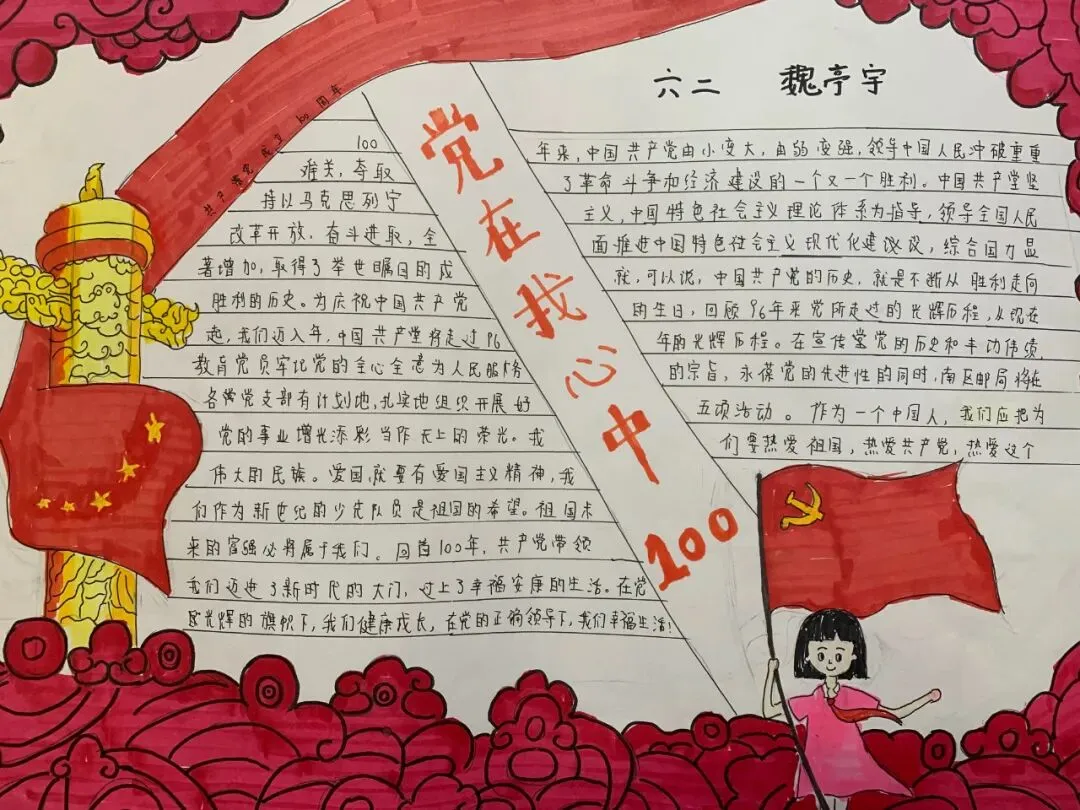 六二 魏亭宇
成立100周年
党在我心中100
100年来，中国共产党由小变大，由弱变强，领导中国人民冲破重重
难关，夺取了革命斗争和经济建设的一个又一个胜利。中国共产党坚
持以马克思列宁主义，中国特色社会主义理论体系为指导，领导全国人民
改革开放，奋斗进取，全面推进中国特色社会主义现代化建设议，综合国力显
著增加，取得了举世瞩目的成就，可以说，中国共产党的历史，就是不断从胜利走向
胜利的历史。为庆祝中国共产党的生日，回顾96年来党所走过的光辉历程，从现在
起，我们迈入年，中国共产党将走过96年的光辉历程。在宣传堂党的历史和丰功伟绩，
教育党员牢记党的全心全意为人民服务的宗旨，永葆党的先进性的同时，南区邮局将在
各党支部有计划地，扎实地组织开展好五项活动。作为一个中国人，我们应把为
党的事业增光添彩当作无上的荣光。我们要热爱祖国，热爱共产党，热爱这个
伟大的民族。爱国就要有爱国主义精神，我
们作为新世纪的少先队员是祖国的希望。祖国未
来的富强必将属于我们。回首100年，共产党带领
我们迈进了新时代的大门，过上了幸福安康的生活。在党
光辉的旗帜下，我们健康成长，在党的正确领导下，我们幸福生活！